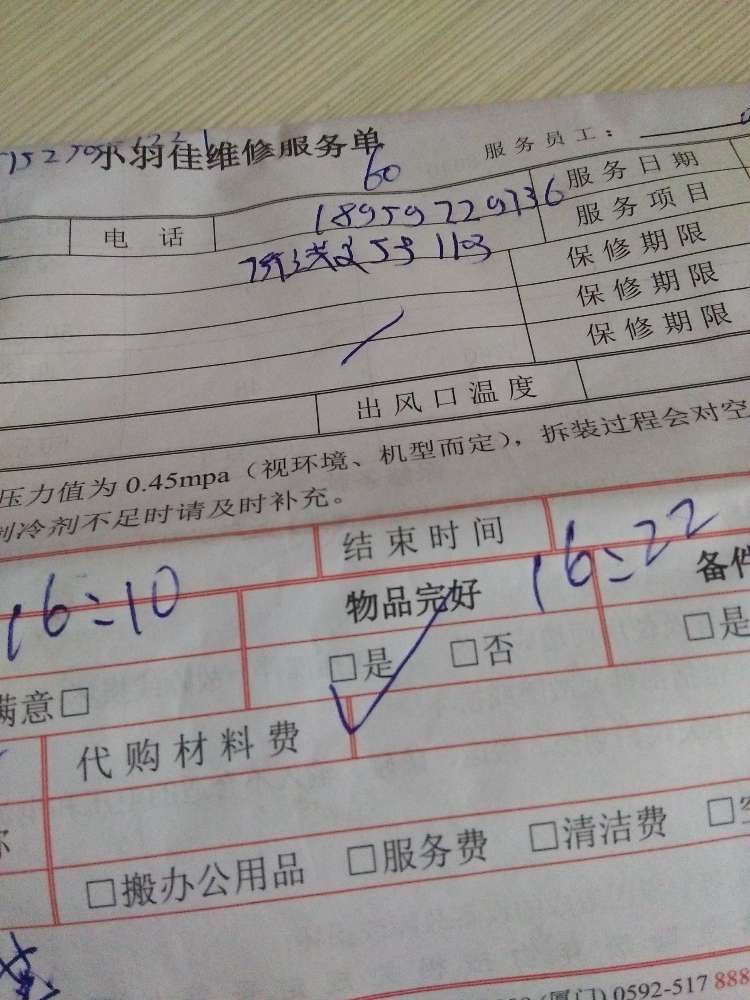 小羽佳维修服务单
服务员工：
60
电话 18959729736 服务日期
服务项目
53 1103 保修期限
保修期限
保修期限
出风口温度
压力值为 0.45mpa（视环境、机型而定），拆装过程会对空
制冷剂不足时请及时补充。
16:10 结束时间 16:22
物品完好 备件
满意□ □是 □否 □是
代购材料费
□搬办公用品 □服务费 □清洁费 □空
(厦门) 0592-517 888